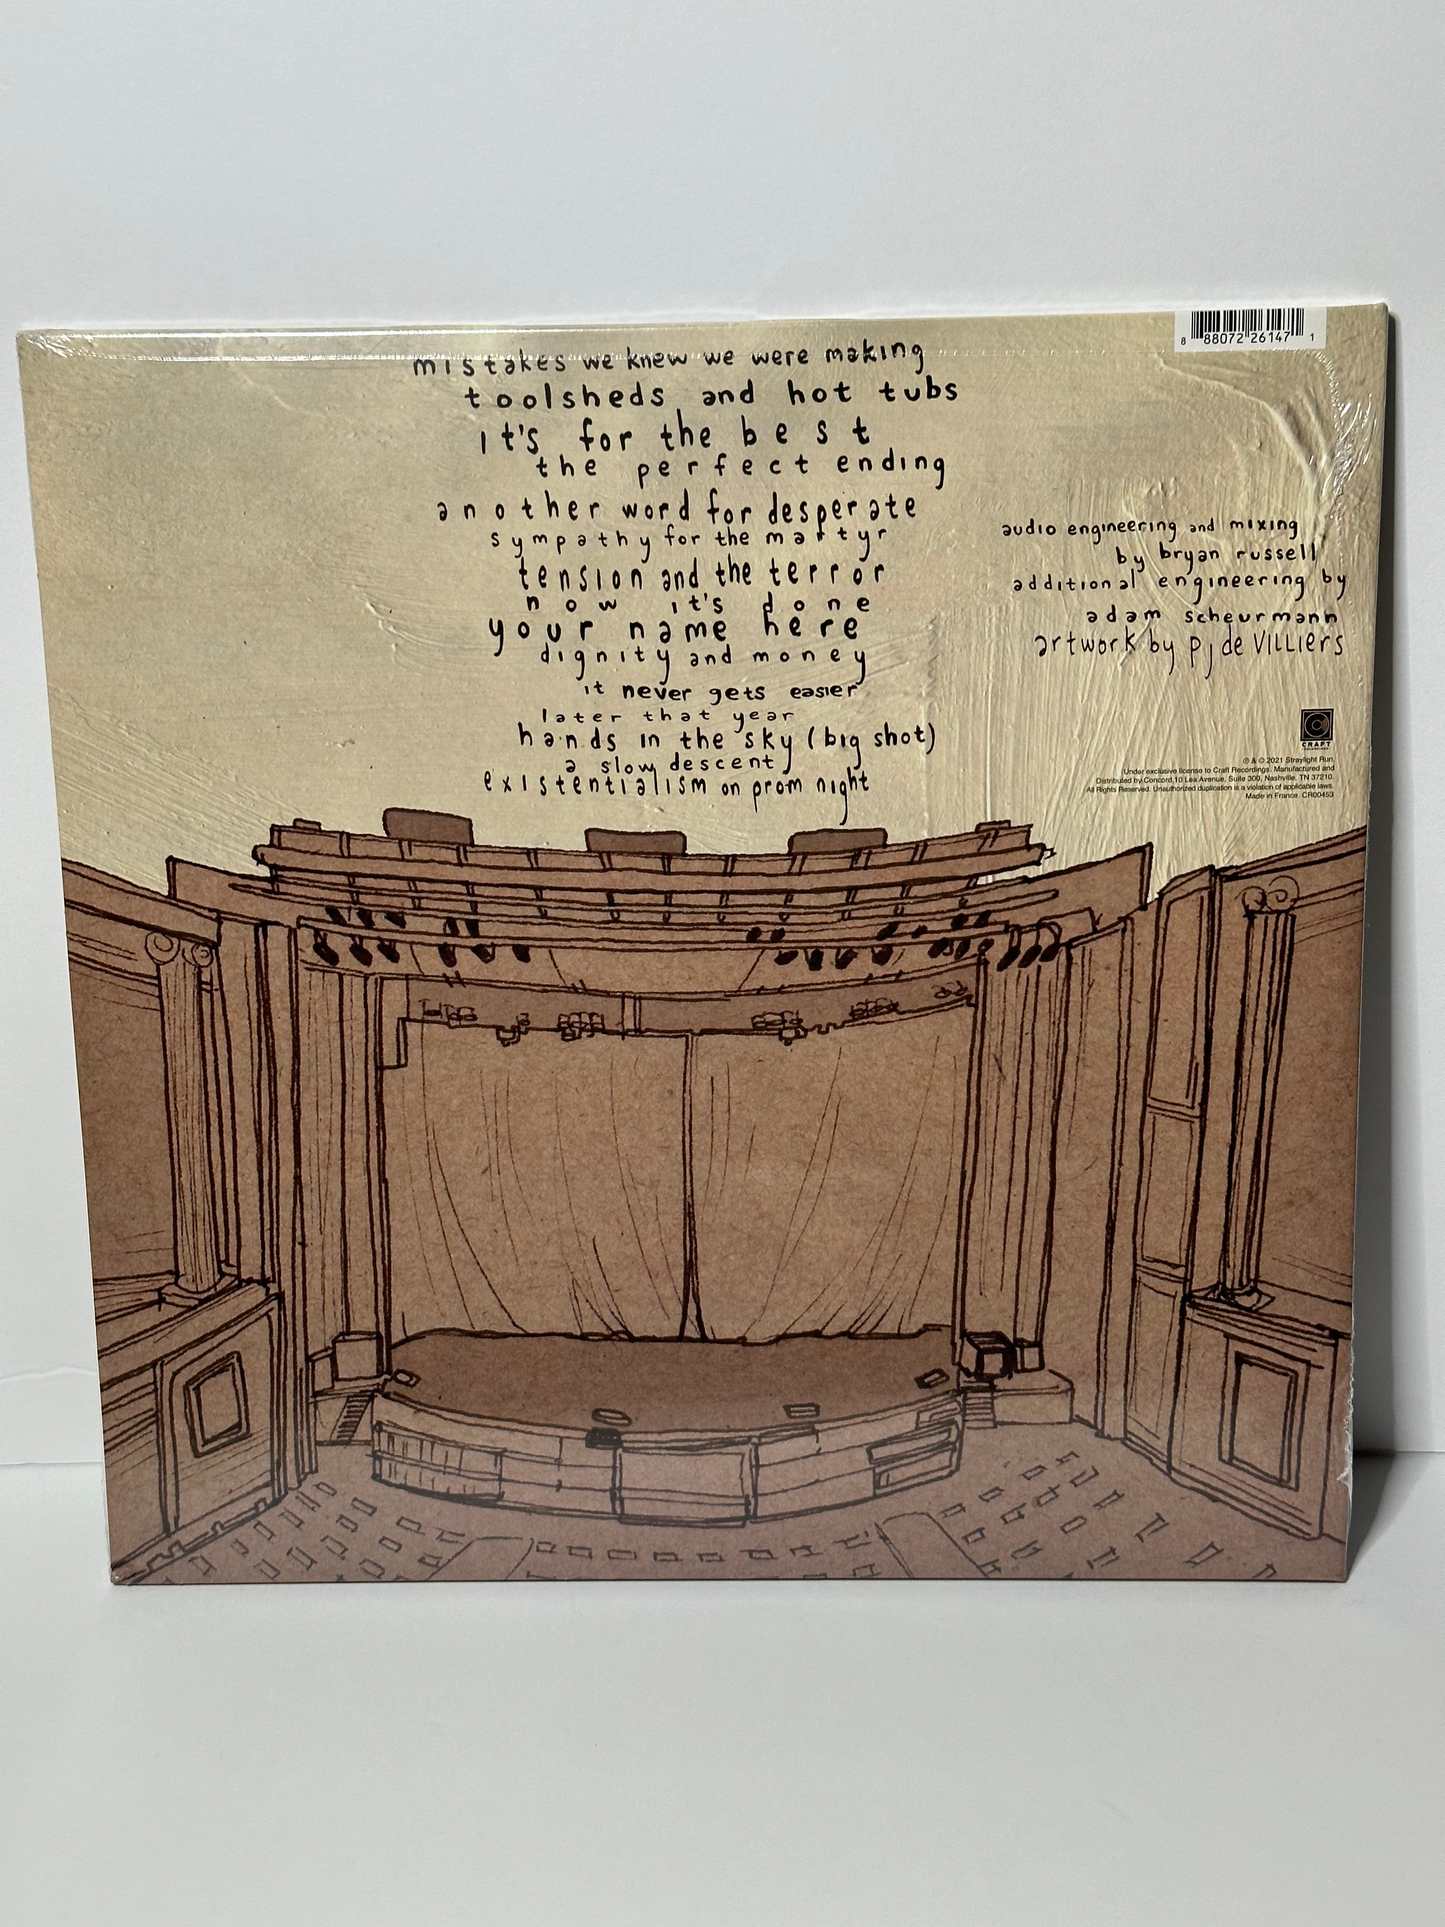 mistakes we knew we were making
toolsheds and hot tubs
it's for the best
the perfect ending
another word for desperate
sympathy for the martyr
tension and the terror
now it's done
your name here
dignity and money
it never gets easier
later that year
hands in the sky (big shot)
a slow descent
existentialism on prom night
8 88072 26147 1
audio engineering and mixing
by bryan russell
additional engineering by
adam scheurmann
artwork by pj de VILLIers
CRAFT
RECORDINGS
℗ & © 2021 Straylight Run.
Under exclusive license to Craft Recordings. Manufactured and
Distributed by Concord, 10 Lea Avenue, Suite 300, Nashville, TN 37210.
All Rights Reserved. Unauthorized duplication is a violation of applicable laws.
Made in France. CR00453